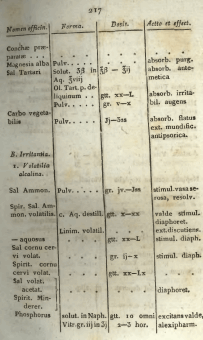 217
Nomen officin. Norma. Dosis. Actio et effect.
Conchae prae-
paratae . . . Pulv. . . . . . . . . . . .
Magnesia alba Pulv. . . . . . . . . absorb. purg.
Sal Tartari Solut. Ʒß in Ʒß — ℥ij absorb. antac-
Aq. ℥viij metica
Ol. Tart. p. de-
liquum . . . gtt. xx—L absorb. irrita-
Pulv. . . . gr. v—x bil. augens
Carbo vegeta-
bilis Pulv. . . . . absorb. flatus
ext. mundific.
antipsorica.
B. Irritantia.
1. Volatilia
alcalina.
Sal Ammon. Pulv. . . . . . stimul. vasa se-
rosa, resolv.
Spir. Sal Am-
mon. volatilis. c. Aq. destill. gtt. x—xx valde stimul.
diaphoret.
Linim. volatil. . . . ext. discutiens.
— aquosus . . . . gtt. xx—L stimul. diaph.
Sal cornu cer-
vi volat. . . . . gr. ij—x stimul. diaph.
Spirit. cornu
cervi volat. . . . . gtt. xx—Lx
Sal volat.
acetat. . . . . diaphoret.
Spirit. Min-
derer.
Phosphorus solut. in Naph. gtt. 10 omni excitans valde,
Vitr. gr. iij in 2—3 hor. alexipharm.